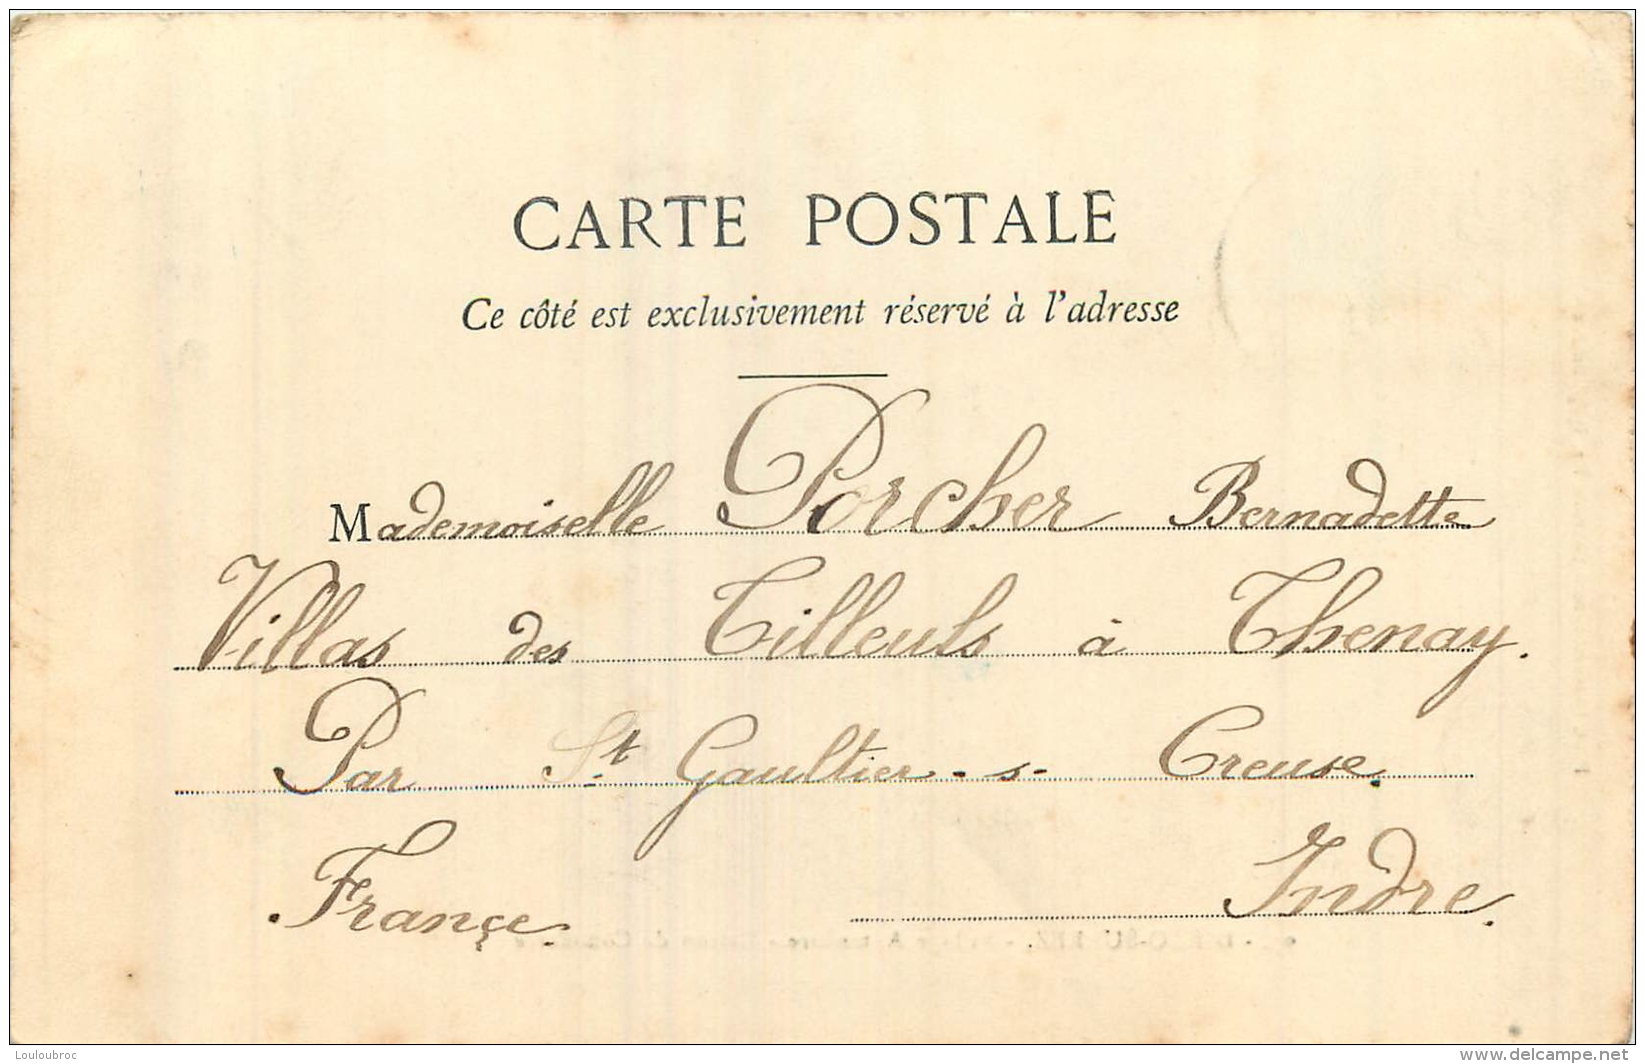 CARTE POSTALE
Ce côté est exclusivement réservé à l'adresse
Mademoiselle Porcher Bernadette
Villas des Tilleuls à Thenay.
Par St. Gaultier - s - Creuse.
Indre.
.Françe
Louloubroc
www.delcampe.net